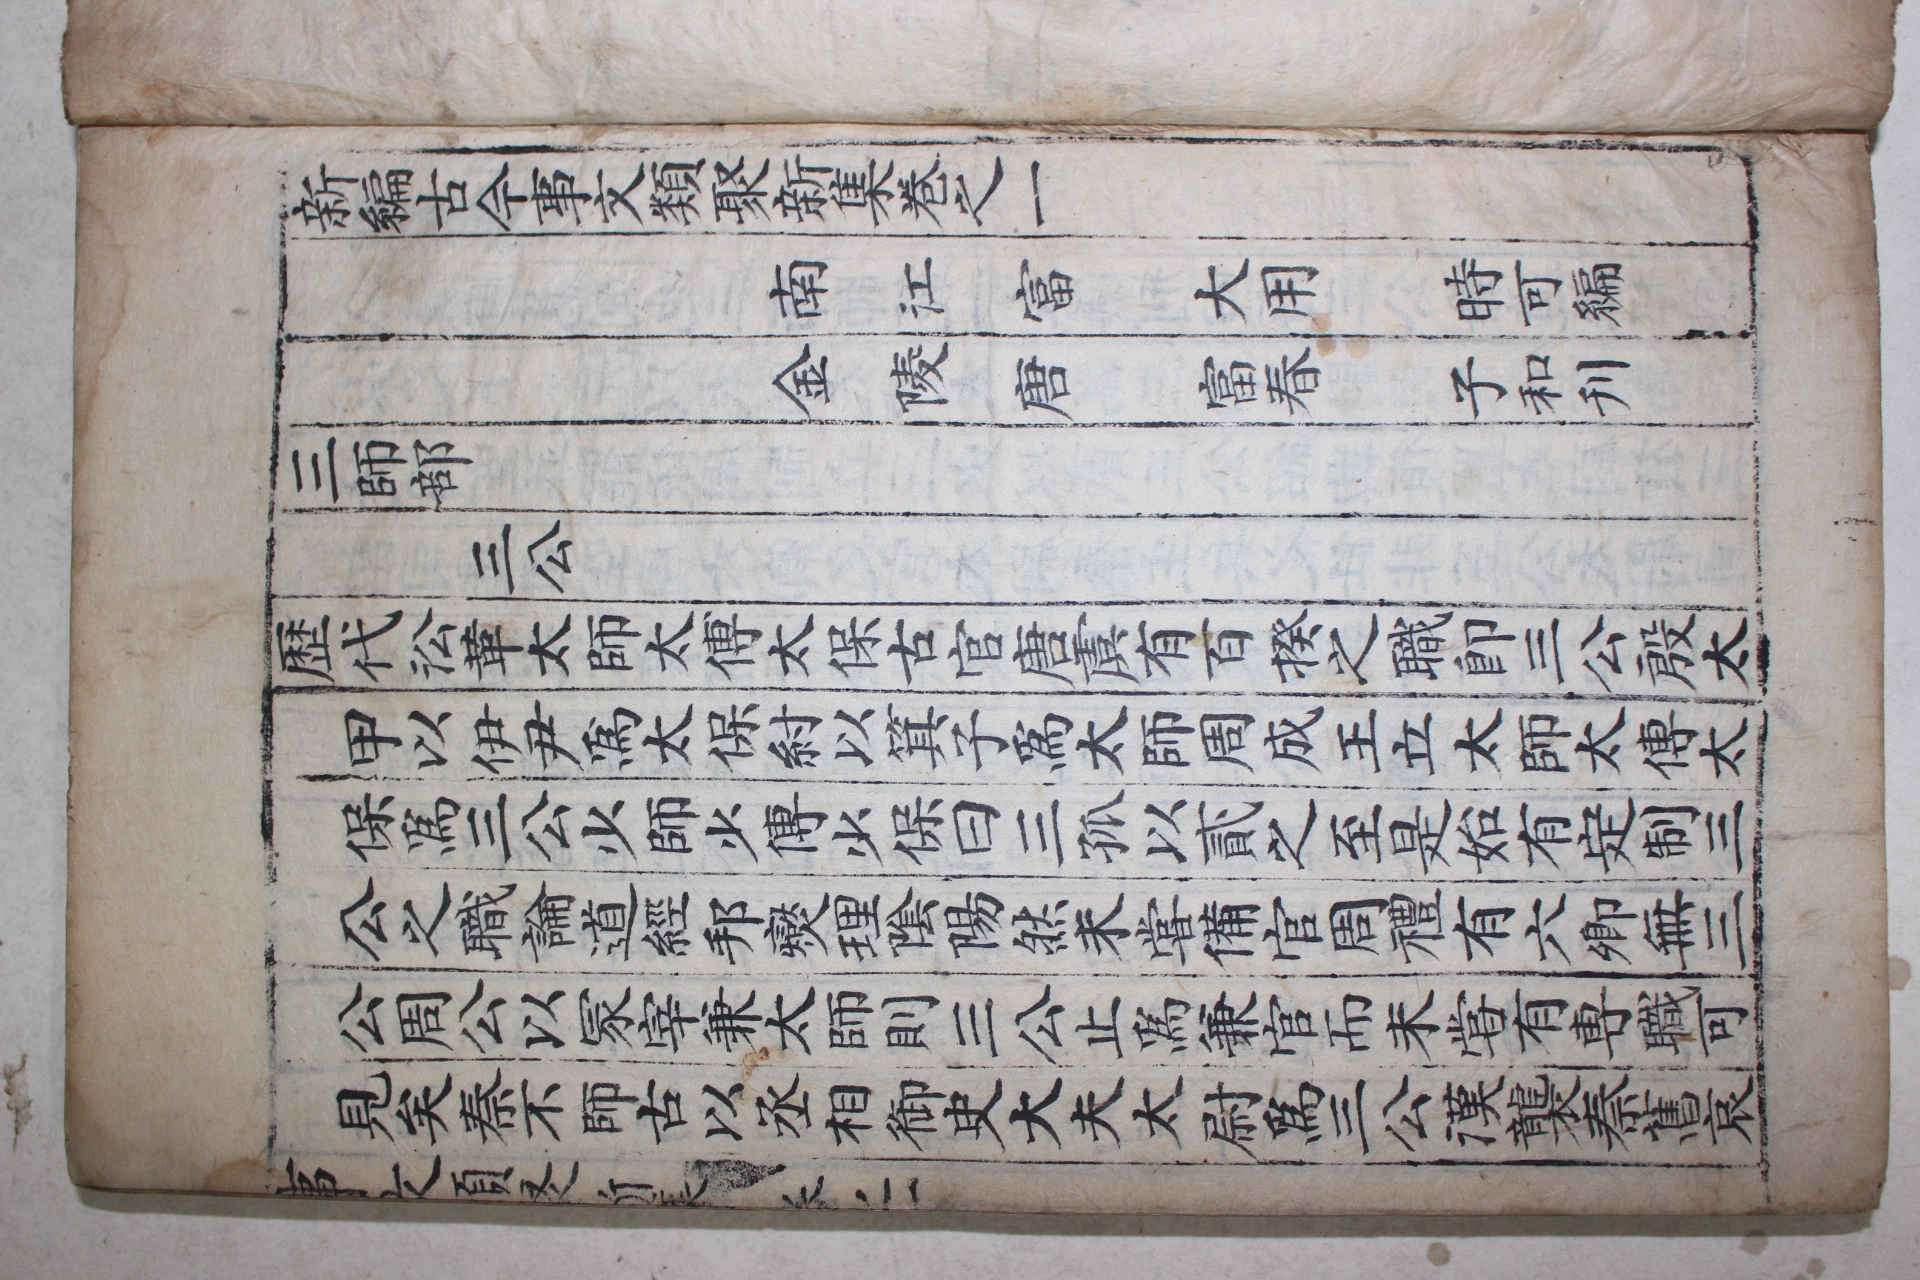 新編古今事文類聚新集卷之一
南江富大用時可編
金陵唐富春子和刋
三師部
三公
歷代沿革太師太傅太保古官唐虞有百揆之職卽三公殷太
甲以伊尹爲太保紂以箕子爲太師周成王立太師太傅太
保爲三公少師少傅少保曰三孤以貳之至是始有定制三
公之職論道經邦燮理陰陽然未甞備官周禮有六卿無三
公周公以冡宰兼太師則三公止爲兼官而未甞有專職可
見矣秦不師古以丞相御史大夫太尉爲三公漢襲秦舊哀